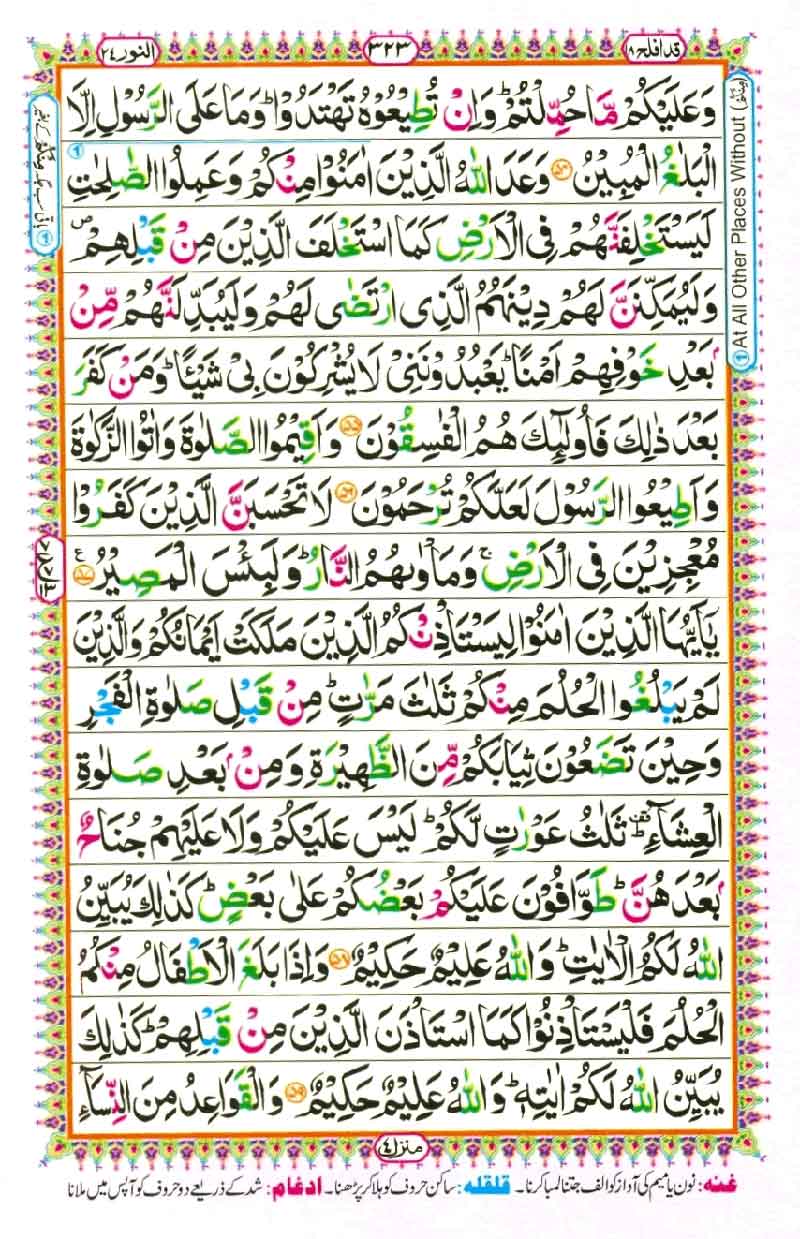 قد افلح ١٨
٣٢٣
النور ٢٤
وَعَلَيۡكُمۡ مَّا حُمِّلۡتُمۡ ؕ وَاِنۡ تُطِيۡعُوۡهُ تَهۡتَدُوۡا ؕ وَمَا عَلَى الرَّسُوۡلِ اِلَّا
الۡبَلٰغُ الۡمُبِيۡنُ ﴿۵۴﴾ وَعَدَ اللّٰهُ الَّذِيۡنَ اٰمَنُوۡا مِنۡكُمۡ وَعَمِلُوا الصّٰلِحٰتِ
لَيَسۡتَخۡلِفَنَّهُمۡ فِى الۡاَرۡضِ كَمَا اسۡتَخۡلَفَ الَّذِيۡنَ مِنۡ قَبۡلِهِمۡ ص
وَلَيُمَكِّنَنَّ لَهُمۡ دِيۡنَهُمُ الَّذِى ارۡتَضٰى لَهُمۡ وَلَيُبَدِّلَنَّهُمۡ مِّنۡۢ
بَعۡدِ خَوۡفِهِمۡ اَمۡنًا ؕ يَعۡبُدُوۡنَنِىۡ لَا يُشۡرِكُوۡنَ بِىۡ شَيۡـًٔــا ؕ وَمَنۡ كَفَرَ
بَعۡدَ ذٰلِكَ فَاُولٰٓٮِٕكَ هُمُ الۡفٰسِقُوۡنَ ﴿۵۵﴾ وَاَقِيۡمُوا الصَّلٰوةَ وَاٰتُوا الزَّكٰوةَ
وَاَطِيۡعُوا الرَّسُوۡلَ لَعَلَّكُمۡ تُرۡحَمُوۡنَ ﴿۵۶﴾ لَا تَحۡسَبَنَّ الَّذِيۡنَ كَفَرُوۡا
مُعۡجِزِيۡنَ فِى الۡاَرۡضِ ۚ وَمَاۡوٰٮهُمُ النَّارُ ؕ وَلَبِئۡسَ الۡمَصِيۡرُ ﴿۵۷﴾ ع
يٰۤـاَيُّهَا الَّذِيۡنَ اٰمَنُوۡا لِيَسۡتَاۡذِنۡكُمُ الَّذِيۡنَ مَلَكَتۡ اَيۡمَانُكُمۡ وَالَّذِيۡنَ
لَمۡ يَـبۡلُغُوا الۡحُـلُمَ مِنۡكُمۡ ثَلٰثَ مَرّٰتٍ ؕ مِنۡ قَبۡلِ صَلٰوةِ الۡفَجۡرِ
وَحِيۡنَ تَضَعُوۡنَ ثِيَابَكُمۡ مِّنَ الظَّهِيۡرَةِ وَمِنۡۢ بَعۡدِ صَلٰوةِ
الۡعِشَآءِ ؕ ثَلٰثُ عَوۡرٰتٍ لَّـكُمۡ ؕ لَـيۡسَ عَلَيۡكُمۡ وَ لَا عَلَيۡهِمۡ جُنَاحٌۢ
بَعۡدَهُنَّ ؕ طَوّٰفُوۡنَ عَلَيۡكُمۡ بَعۡضُكُمۡ عَلٰى بَعۡضٍ ؕ كَذٰلِكَ يُبَيِّنُ
اللّٰهُ لَـكُمُ الۡاٰيٰتِ ؕ وَاللّٰهُ عَلِيۡمٌ حَكِيۡمٌ ﴿۵۸﴾ وَاِذَا بَلَغَ الۡاَطۡفَالُ مِنۡكُمُ
الۡحُـلُمَ فَلۡيَسۡتَاۡذِنُوۡا كَمَا اسۡتَـاۡذَنَ الَّذِيۡنَ مِنۡ قَبۡلِهِمۡ ؕ كَذٰلِكَ
يُبَيِّنُ اللّٰهُ لَـكُمۡ اٰيٰتِهٖ ؕ وَاللّٰهُ عَلِيۡمٌ حَكِيۡمٌ ﴿۵۹﴾ وَالۡـقَوَاعِدُ مِنَ النِّسَآءِ
① At All Other Places Without
منزل ٤
غنہ: نون یا میم کی آواز کو الف جتنا لمبا کرنا۔ قلقلہ: ساکن حروف کو ہلا کر پڑھنا۔ ادغام: شد کے ذریعے دو حروف کو آپس میں ملانا